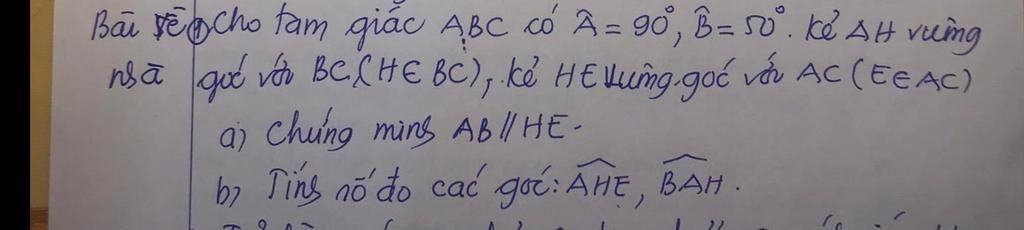 Bài về ① Cho tam giác ABC có Â = 90°, B̂ = 50°. Kẻ AH vuông
nhà góc với BC (H ∈ BC), kẻ HE vuông góc với AC (E ∈ AC)
a) Chứng minh AB // HE.
b) Tính số đo các góc: AHE, BAH.